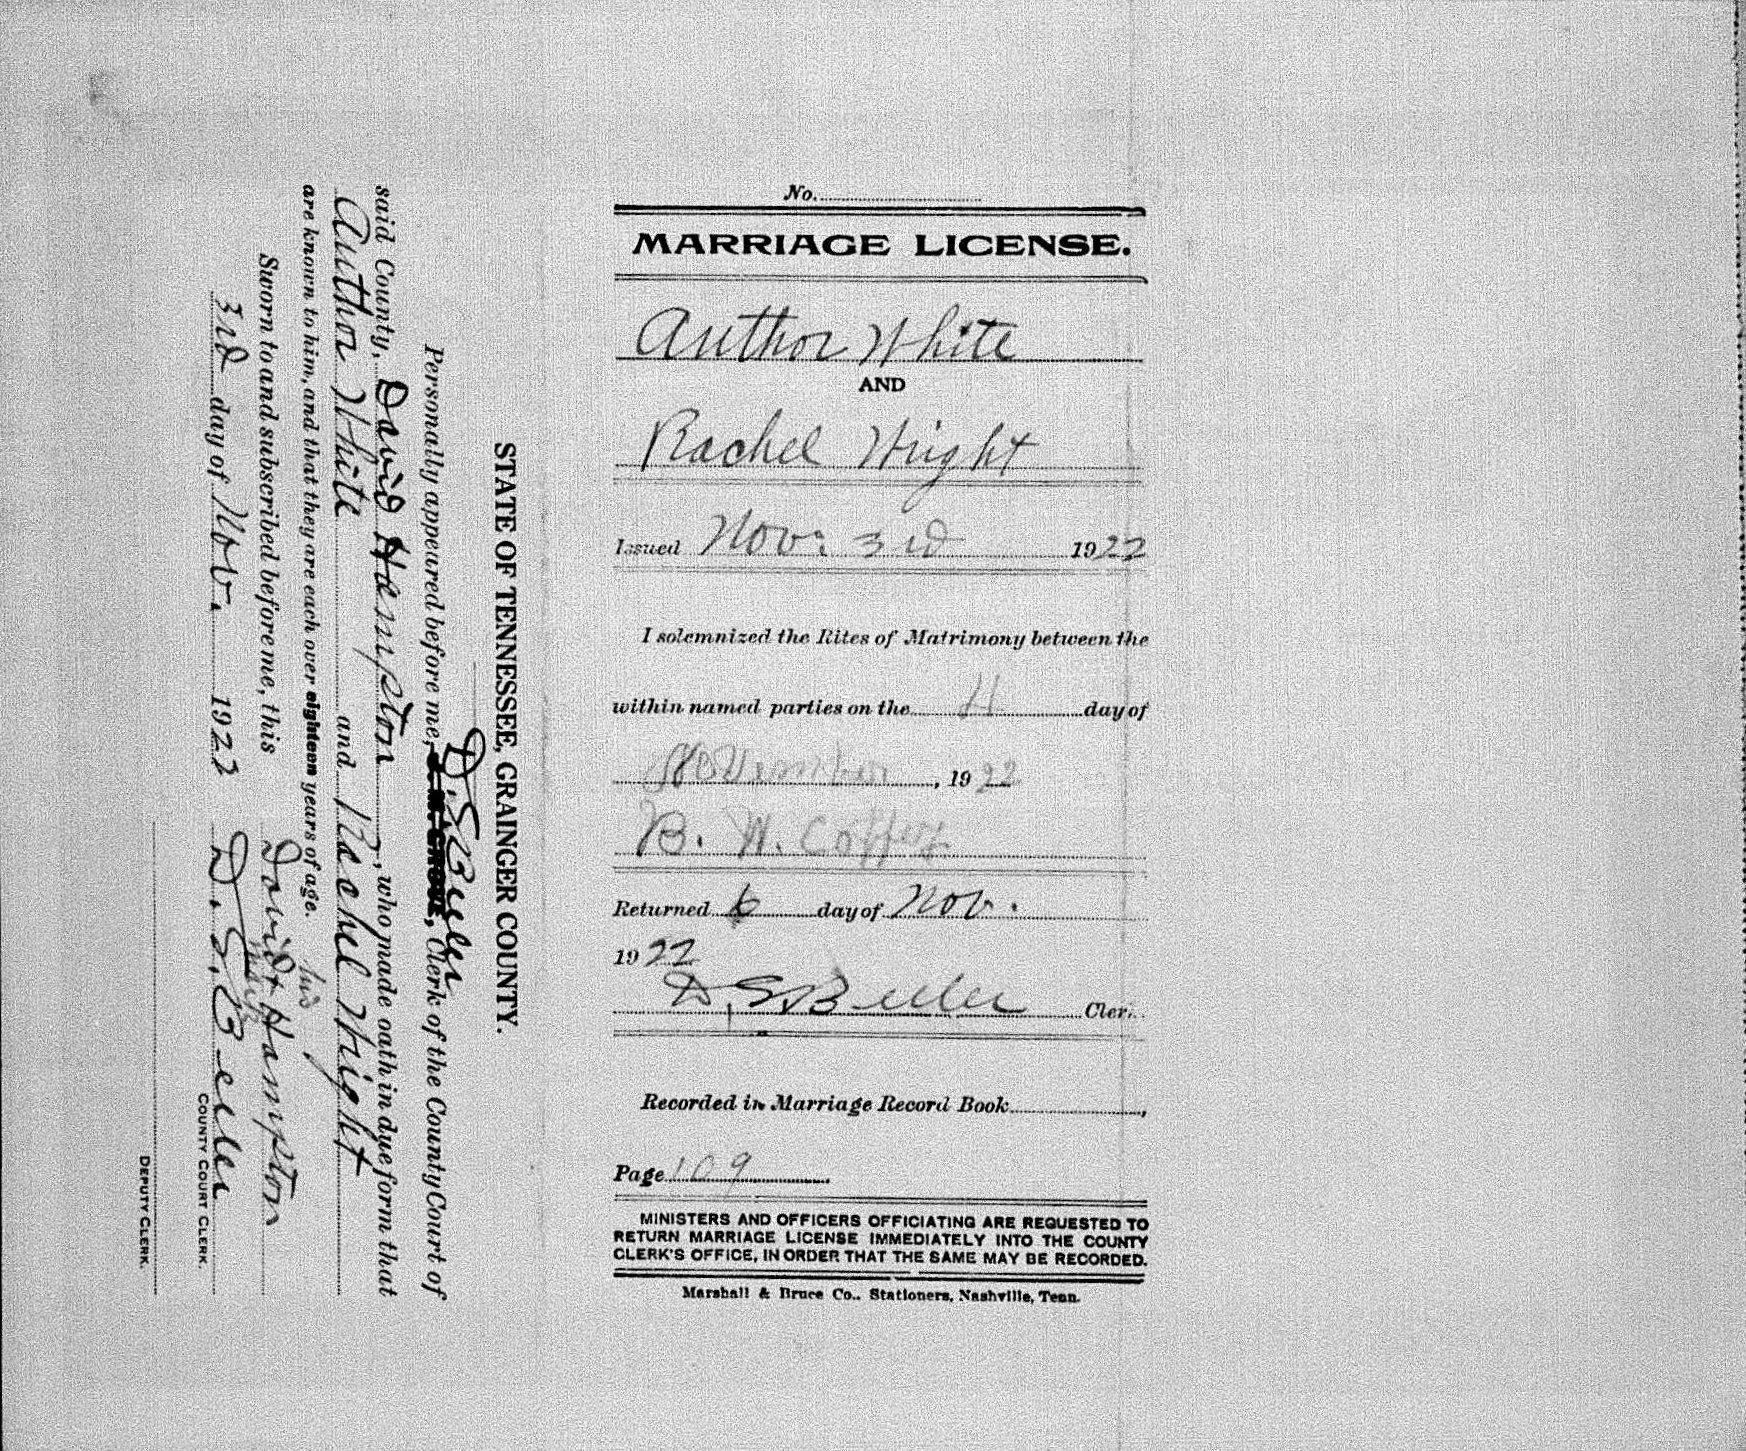 No.
MARRIAGE LICENSE.
Author White
AND
Rachel Wright
Issued Nov: 3rd 1922
I solemnized the Rites of Matrimony between the
within named parties on the 4 day of
November, 1922
B. W. Coffey
Returned 6 day of Nov.
1922
D. S. Beeler Cler
Recorded in Marriage Record Book
Page 109
MINISTERS AND OFFICERS OFFICIATING ARE REQUESTED TO
RETURN MARRIAGE LICENSE IMMEDIATELY INTO THE COUNTY
CLERK'S OFFICE, IN ORDER THAT THE SAME MAY BE RECORDED.
Marshall & Bruce Co.. Stationers, Nashville, Tenn.
STATE OF TENNESSEE, GRAINGER COUNTY.
D. S. Beeler
Personally appeared before me, Clerk of the County Court of
said County, David Hampton, who made oath in due form that
Author White and Rachel Wright
are known to him, and that they are each over eighteen years of age.
his
Sworn to and subscribed before me, this David Hampton
mark
3rd day of Nov. 1922 D. S. Beeler
COUNTY COURT CLERK.
DEPUTY CLERK.